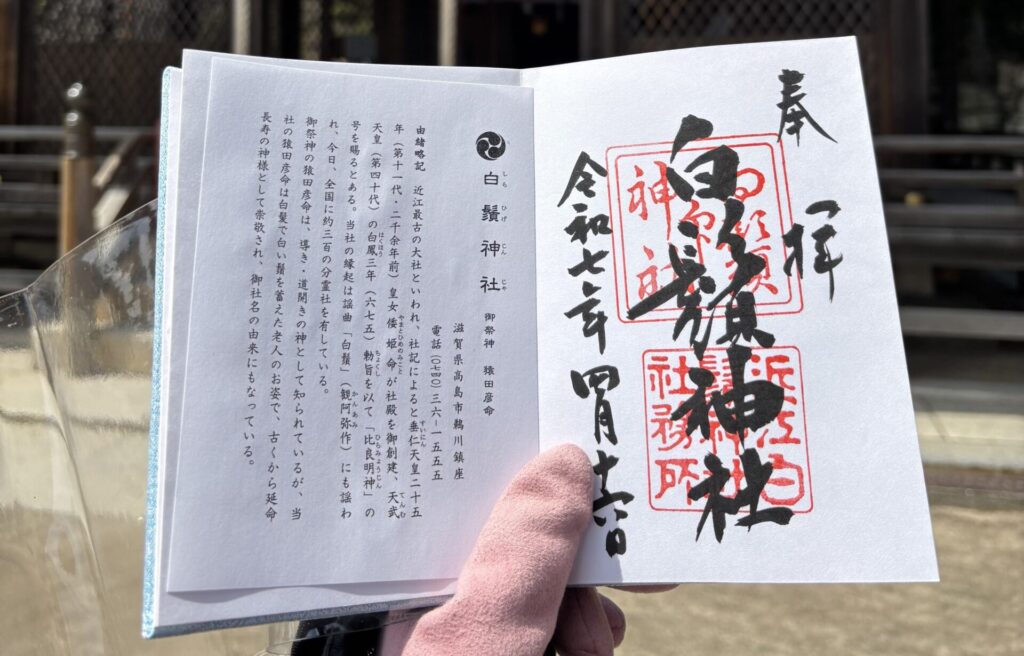 奉拝
白鬚神社
白鬚神社
近江白鬚神社社務所
令和七年四月十六日
白鬚神社 御祭神 猿田彦命
しらひげじんじゃ
滋賀県高島市鵜川鎮座
電話(〇七四〇)三六−一五五五
由緒略記 近江最古の大社といわれ、社記によると垂仁天皇二十五
すいにん
年(第十一代・二千余年前)皇女倭姫命が社殿を御創建、天武
やまとひめのみこと てんむ
天皇(第四十代)の白鳳三年(六七五)勅旨を以て「比良明神」の
はくほう ちょくし ひらみょうじん
号を賜るとある。当社の縁起は謡曲「白鬚」(観阿弥作)にも謡わ
かんあみ
れ、今日、全国に約三百の分霊社を有している。
御祭神の猿田彦命は、導き・道開きの神として知られているが、当
社の猿田彦命は白髪で白い鬚を蓄えた老人のお姿で、古くから延命
長寿の神様として崇敬され、御社名の由来にもなっている。